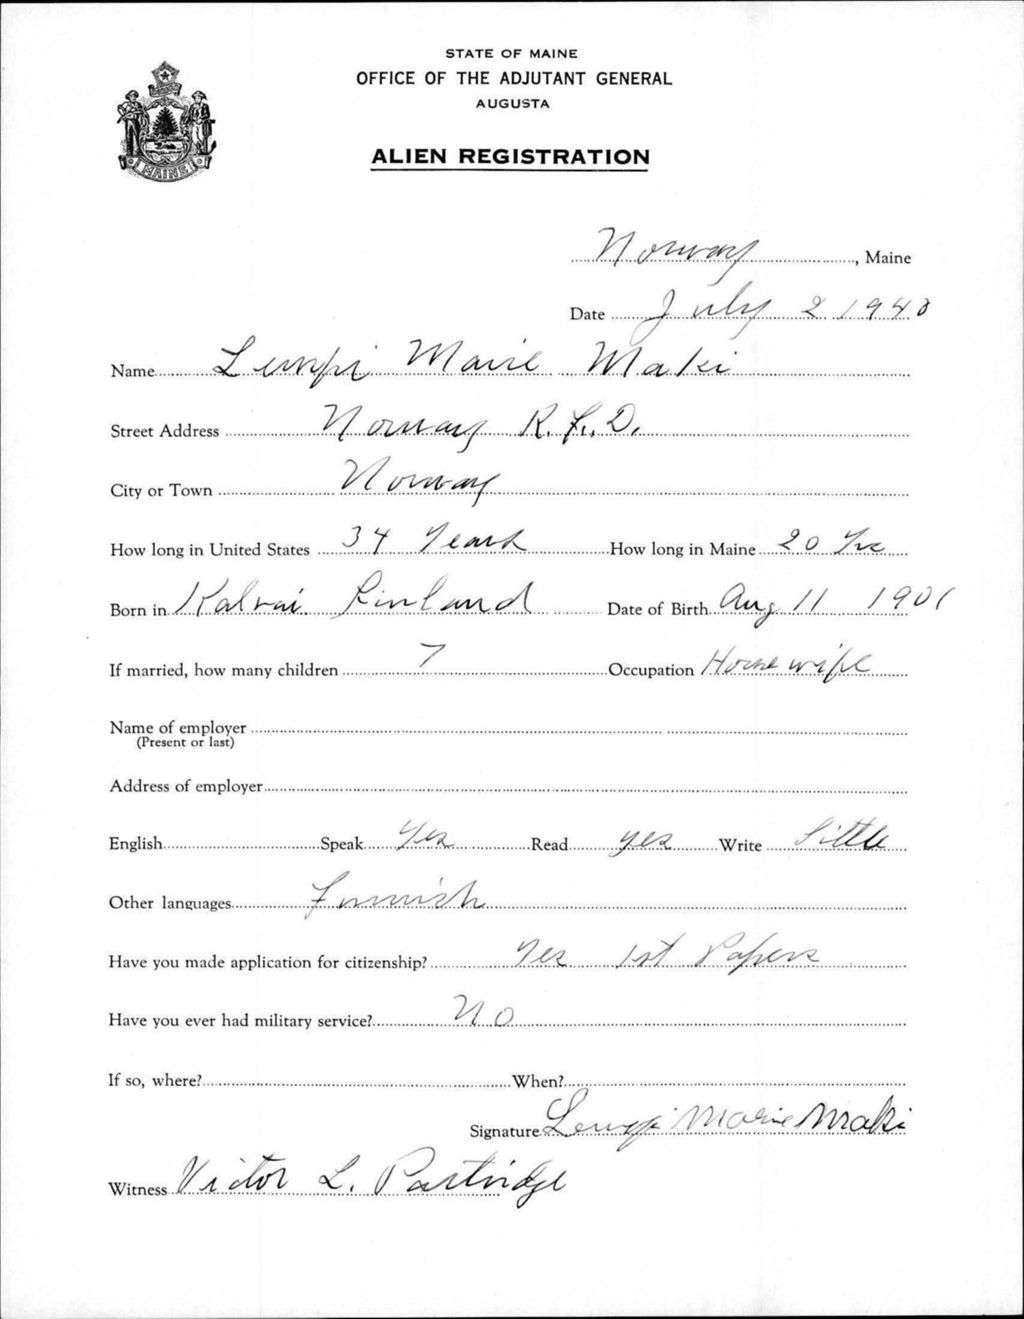 STATE OF MAINE
OFFICE OF THE ADJUTANT GENERAL
AUGUSTA
ALIEN REGISTRATION
MAINE
Norway, Maine
Date July 2 1940
Name Lempi Marie Maki
Street Address Norway R.F.D.
City or Town Norway
How long in United States 34 Years How long in Maine 20 Yrs
Born in Finland Date of Birth Aug 11 1901
If married, how many children 7 Occupation Housewife
Name of employer
(Present or last)
Address of employer
English Speak Yes Read yes Write Little
Other languages Finnish
Have you made application for citizenship? Yes 1st Papers
Have you ever had military service? No
If so, where? When?
Signature Lempi Marie Maki
Witness Victor L. Partridge